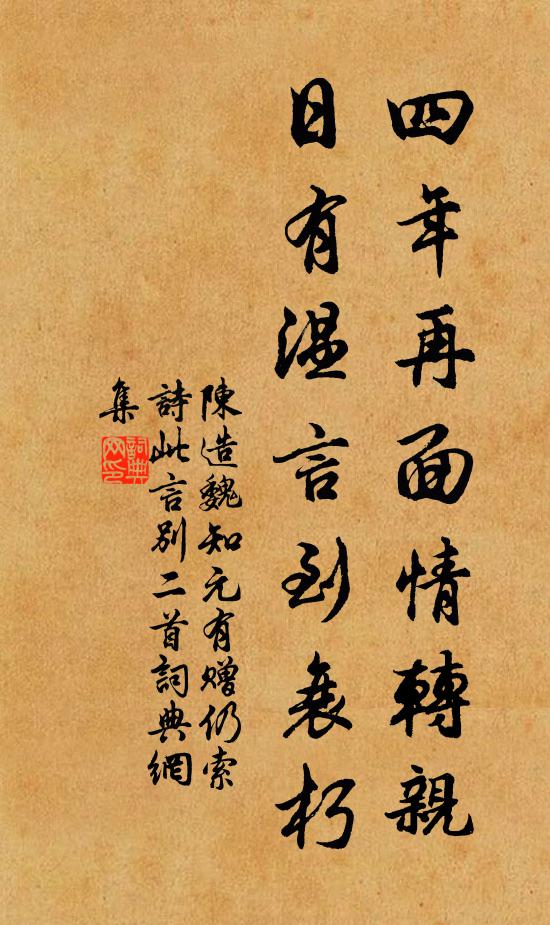 四年再面情轉親
日有温言到衰朽
陳造魏知元有贈仍索
詩此言別二首詞典網
集
詞典網印